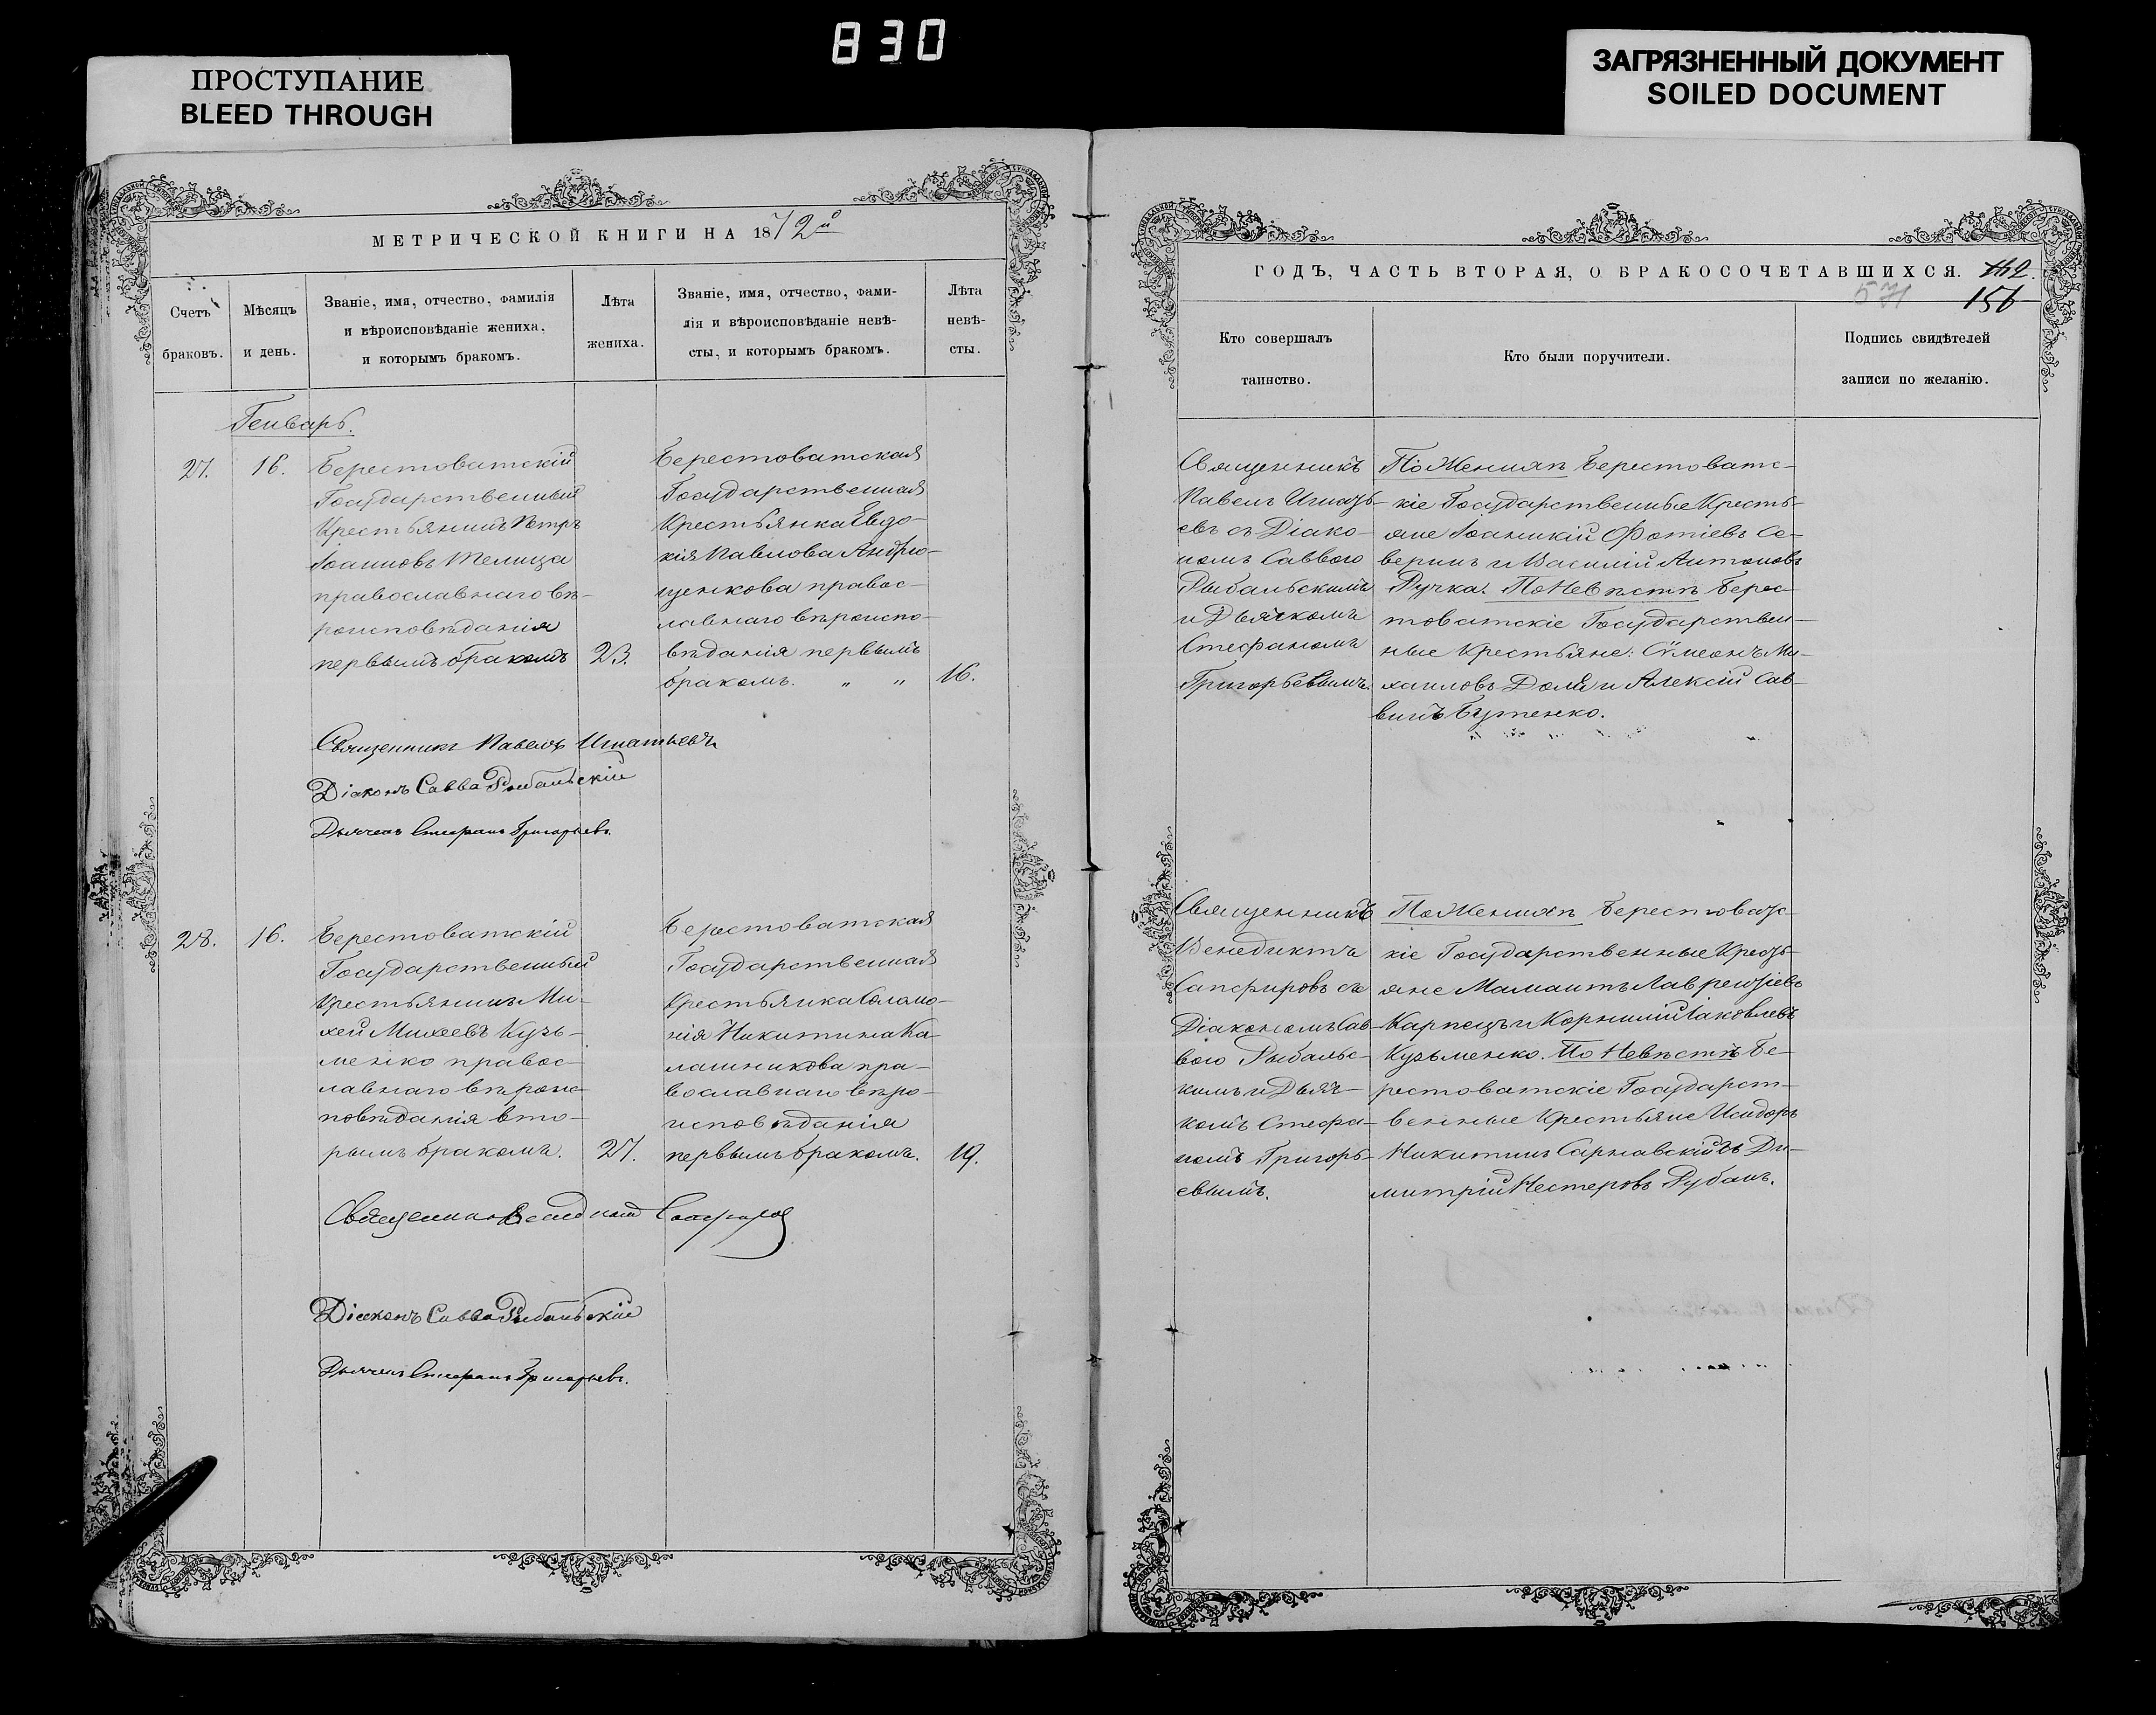 830
ПРОСТУПАНИЕ
BLEED THROUGH
ЗАГРЯЗНЕННЫЙ ДОКУМЕНТ
SOILED DOCUMENT
МЕТРИЧЕСКОЙ КНИГИ НА 1872й
Счетъ
браковъ.
Мѣсяцъ
и день.
Званіе, имя, отчество, фамилія
и вѣроисповѣданіе жениха,
и которымъ бракомъ.
Лѣта
жениха.
Званіе, имя, отчество, фами-
лія и вѣроисповѣданіе невѣ-
сты, и которымъ бракомъ.
Лѣта
невѣ-
сты.
Генварь.
27.
16.
Берестоватскій
Государственный
Крестьянинъ Петръ
Іоанновъ Телица
православнаго вѣ-
роисповѣданія
первымъ бракомъ
23.
Берестоватская
Государственная
Крестьянка Евдо-
кія Павлова Андрю-
щенкова правос-
лавнаго вѣроиспо-
вѣданія первымъ
бракомъ. " "
16.
Священникъ Павелъ Игнатьевъ
Діаконъ Савва Рыбальскій
Дьячекъ Стефанъ Григорьевъ.
28.
16.
Берестоватскій
Государственный
Крестьянинъ Ми-
хей Михеевъ Кузь-
менко правос-
лавнаго вѣроис-
повѣданія вто-
рымъ бракомъ.
27.
Берестоватская
Государственная
Крестьянка Соломо-
нія Никитина Ка-
лашникова пра-
вославнаго вѣро-
исповѣданія
первымъ бракомъ.
19.
Священникъ Венедиктъ Сапфировъ
Діаконъ Савва Рыбальскій
Дьячекъ Стефанъ Григорьевъ.
ГОДЪ, ЧАСТЬ ВТОРАЯ, О БРАКОСОЧЕТАВШИХСЯ.
571
156
Кто совершалъ
таинство.
Кто были поручители.
Подпись свидѣтелей
записи по желанію.
Священникъ
Павелъ Игнать-
евъ съ Діако-
номъ Саввою
Рыбальскимъ
и Дьячкомъ
Стефаномъ
Григорьевымъ.
По Женихѣ Берестоватс-
кіе Государственные Кресть-
яне Іоанникій Фотіевъ Се-
веринъ и Василій Антоновъ
Ручка. По Невѣстѣ Берес-
товатскіе Государствен-
ные Крестьяне: Сѵмеонъ Ми-
хаиловъ Доля и Алексій Сав-
винъ Бутенко.
Священникъ
Венедиктъ
Сапфировъ съ
Діакономъ Сав-
вою Рыбальс-
кимъ и Дьяч-
комъ Стефа-
номъ Григорь-
евымъ.
По Женихѣ Берестоватс-
кіе Государственные Кресть-
яне Мамантъ Лаврентіевъ
Карпецъ и Корнилій Іаковлевъ
Кузьменко. По Невѣстѣ Бе-
рестоватскіе Государст-
венные Крестьяне Исидоръ
Никитинъ Сарнавскій и Ди-
митрій Нестеровъ Рубанъ.